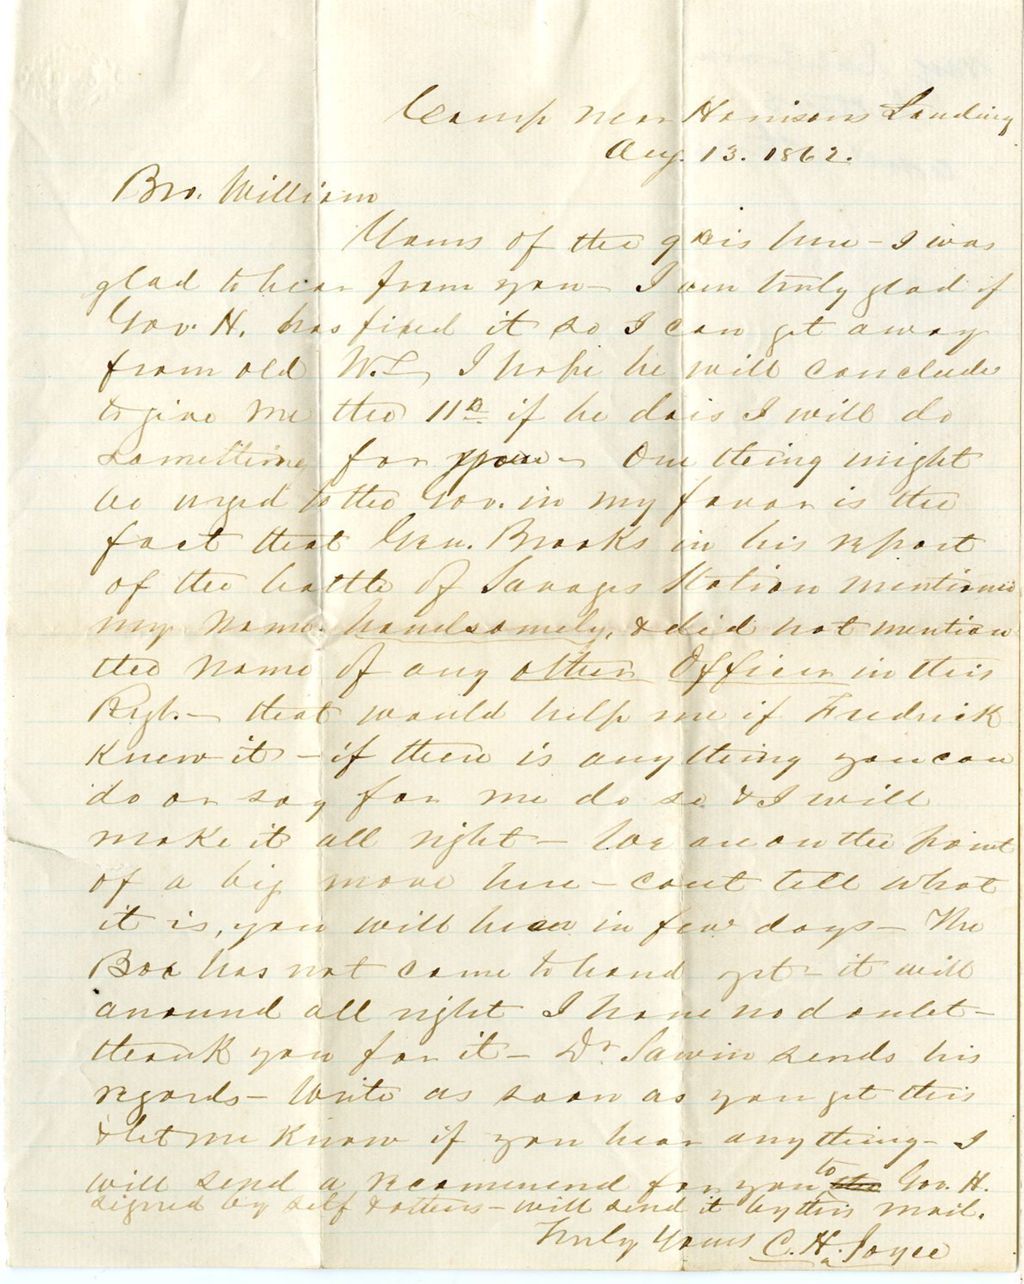 Camp near Harrisons Landing
Aug. 13. 1862.
Bro. William
Yours of the 9 is here - I was
glad to hear from you - I am truly glad if
Gov. H. has fixed it so I can get away
from old W. I hope he will conclude
to give me the 11th if he dois I will do
something for you - One thing might
be urged to the Gov. in my favor is the
fact that Gen. Brooks in his report
of the battle of Savages Station mentioned
my name handsomely, & did not mention
the name of any other Officer in this
Regt. - that would help me if Fredrick
knew it - if there is anything you can
do or say for me do so & I will
make it all right - We are on the point
of a big move here - cant tell what
it is, you will hear in few days - The
Box has not come to hand yet - it will
around all right I have no doubt -
thank you for it - Dr Sawin sends his
regards - Write as soon as you get this
& let me know if you hear anything - I
will send a recommend for you to Gov. H.
signed by self & others - will send it by this mail.
Truly Yours C. H. Joyce